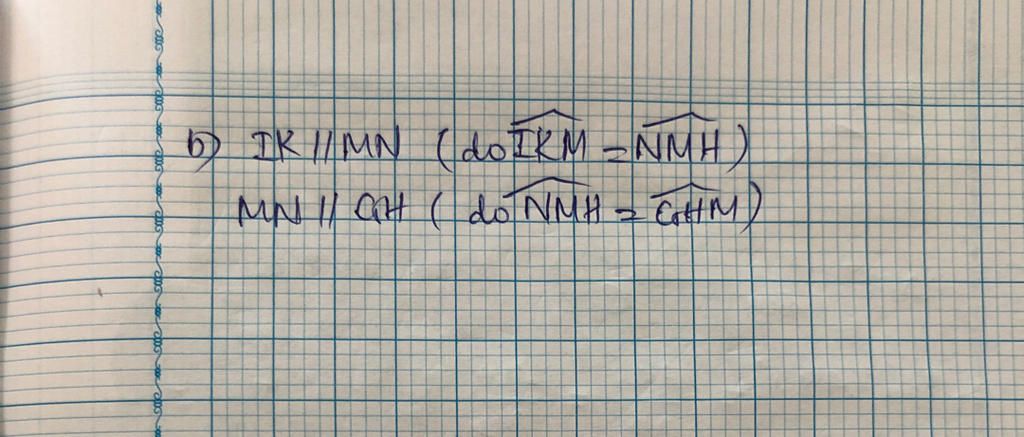 b) IK // MN ( do \widehat{IKM} = \widehat{NMH} )
MN // GH ( do \widehat{NMH} = \widehat{GHM} )